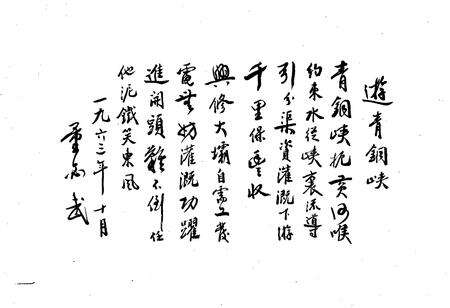 遊青銅峽
青銅峽扼黃河喉
約束水從峽裏流導
引分渠資灌溉下游
千里保豐收
興修大壩自當工發
電無妨灌溉功躍
進開頭難不倒任
他泥鐵笑東風
一九六三年十月
董必武